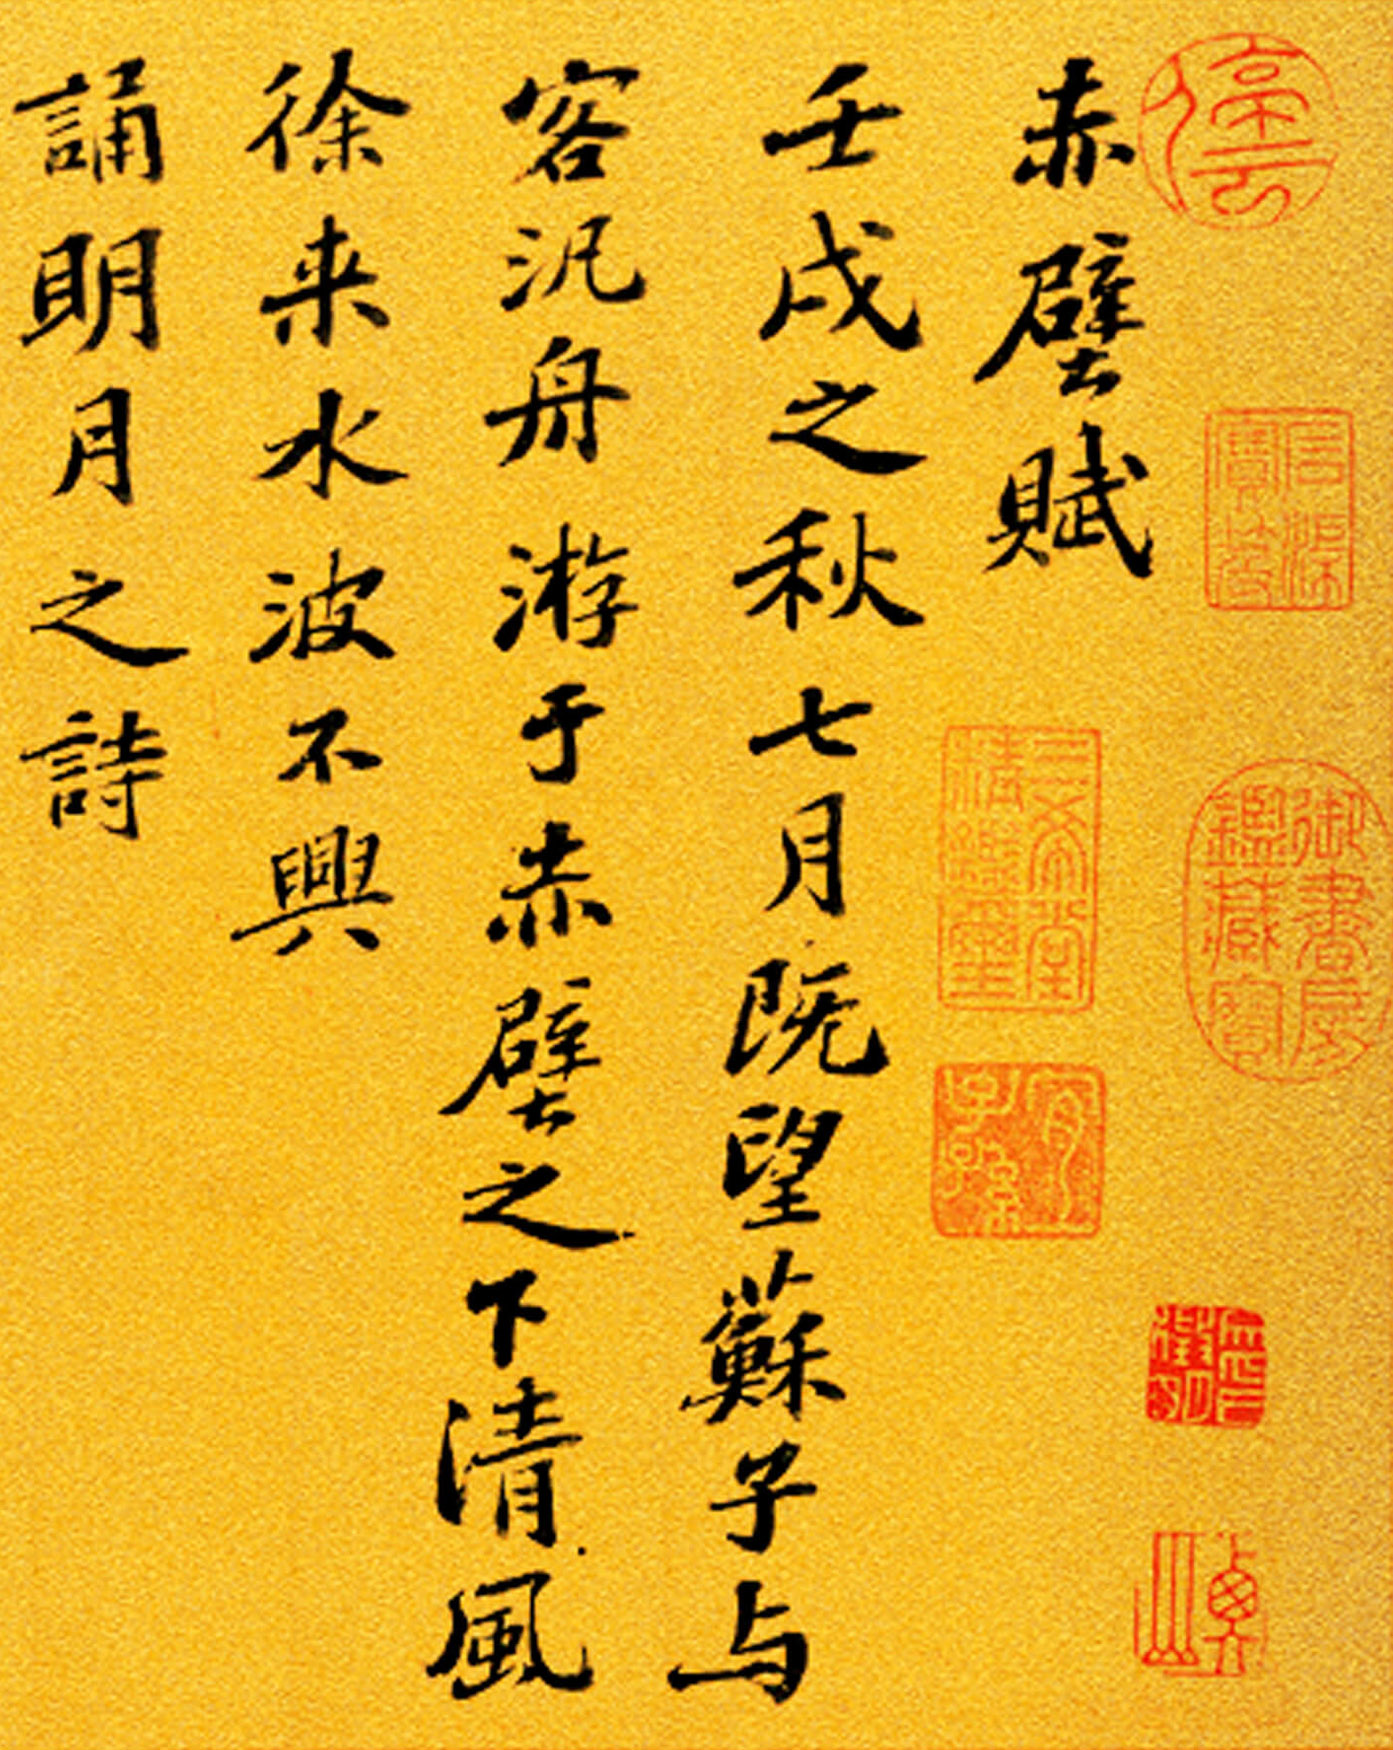 停云
御書房鑑藏寶
三希堂精鑑璽
宜子孫
赤壁賦
壬戌之秋七月既望蘇子与
客汎舟游于赤壁之下清風
徐来水波不興
誦明月之詩